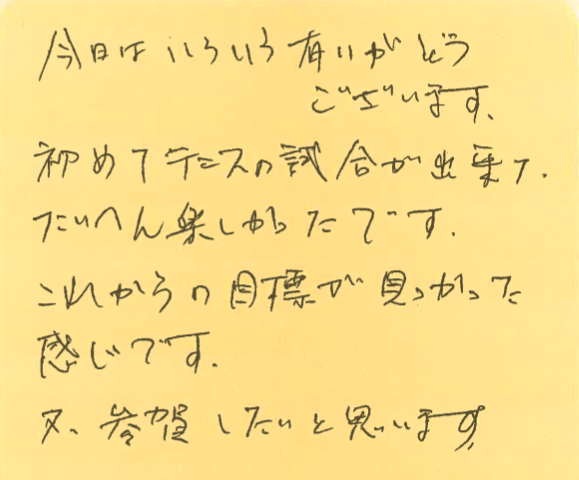 今日はいろいろ有りがどう
ございます。
初めてテニスの試合が出来て、
たいへん楽しかったです。
これからの目標が見つかった
感じです。
又、参賀したいと思います。